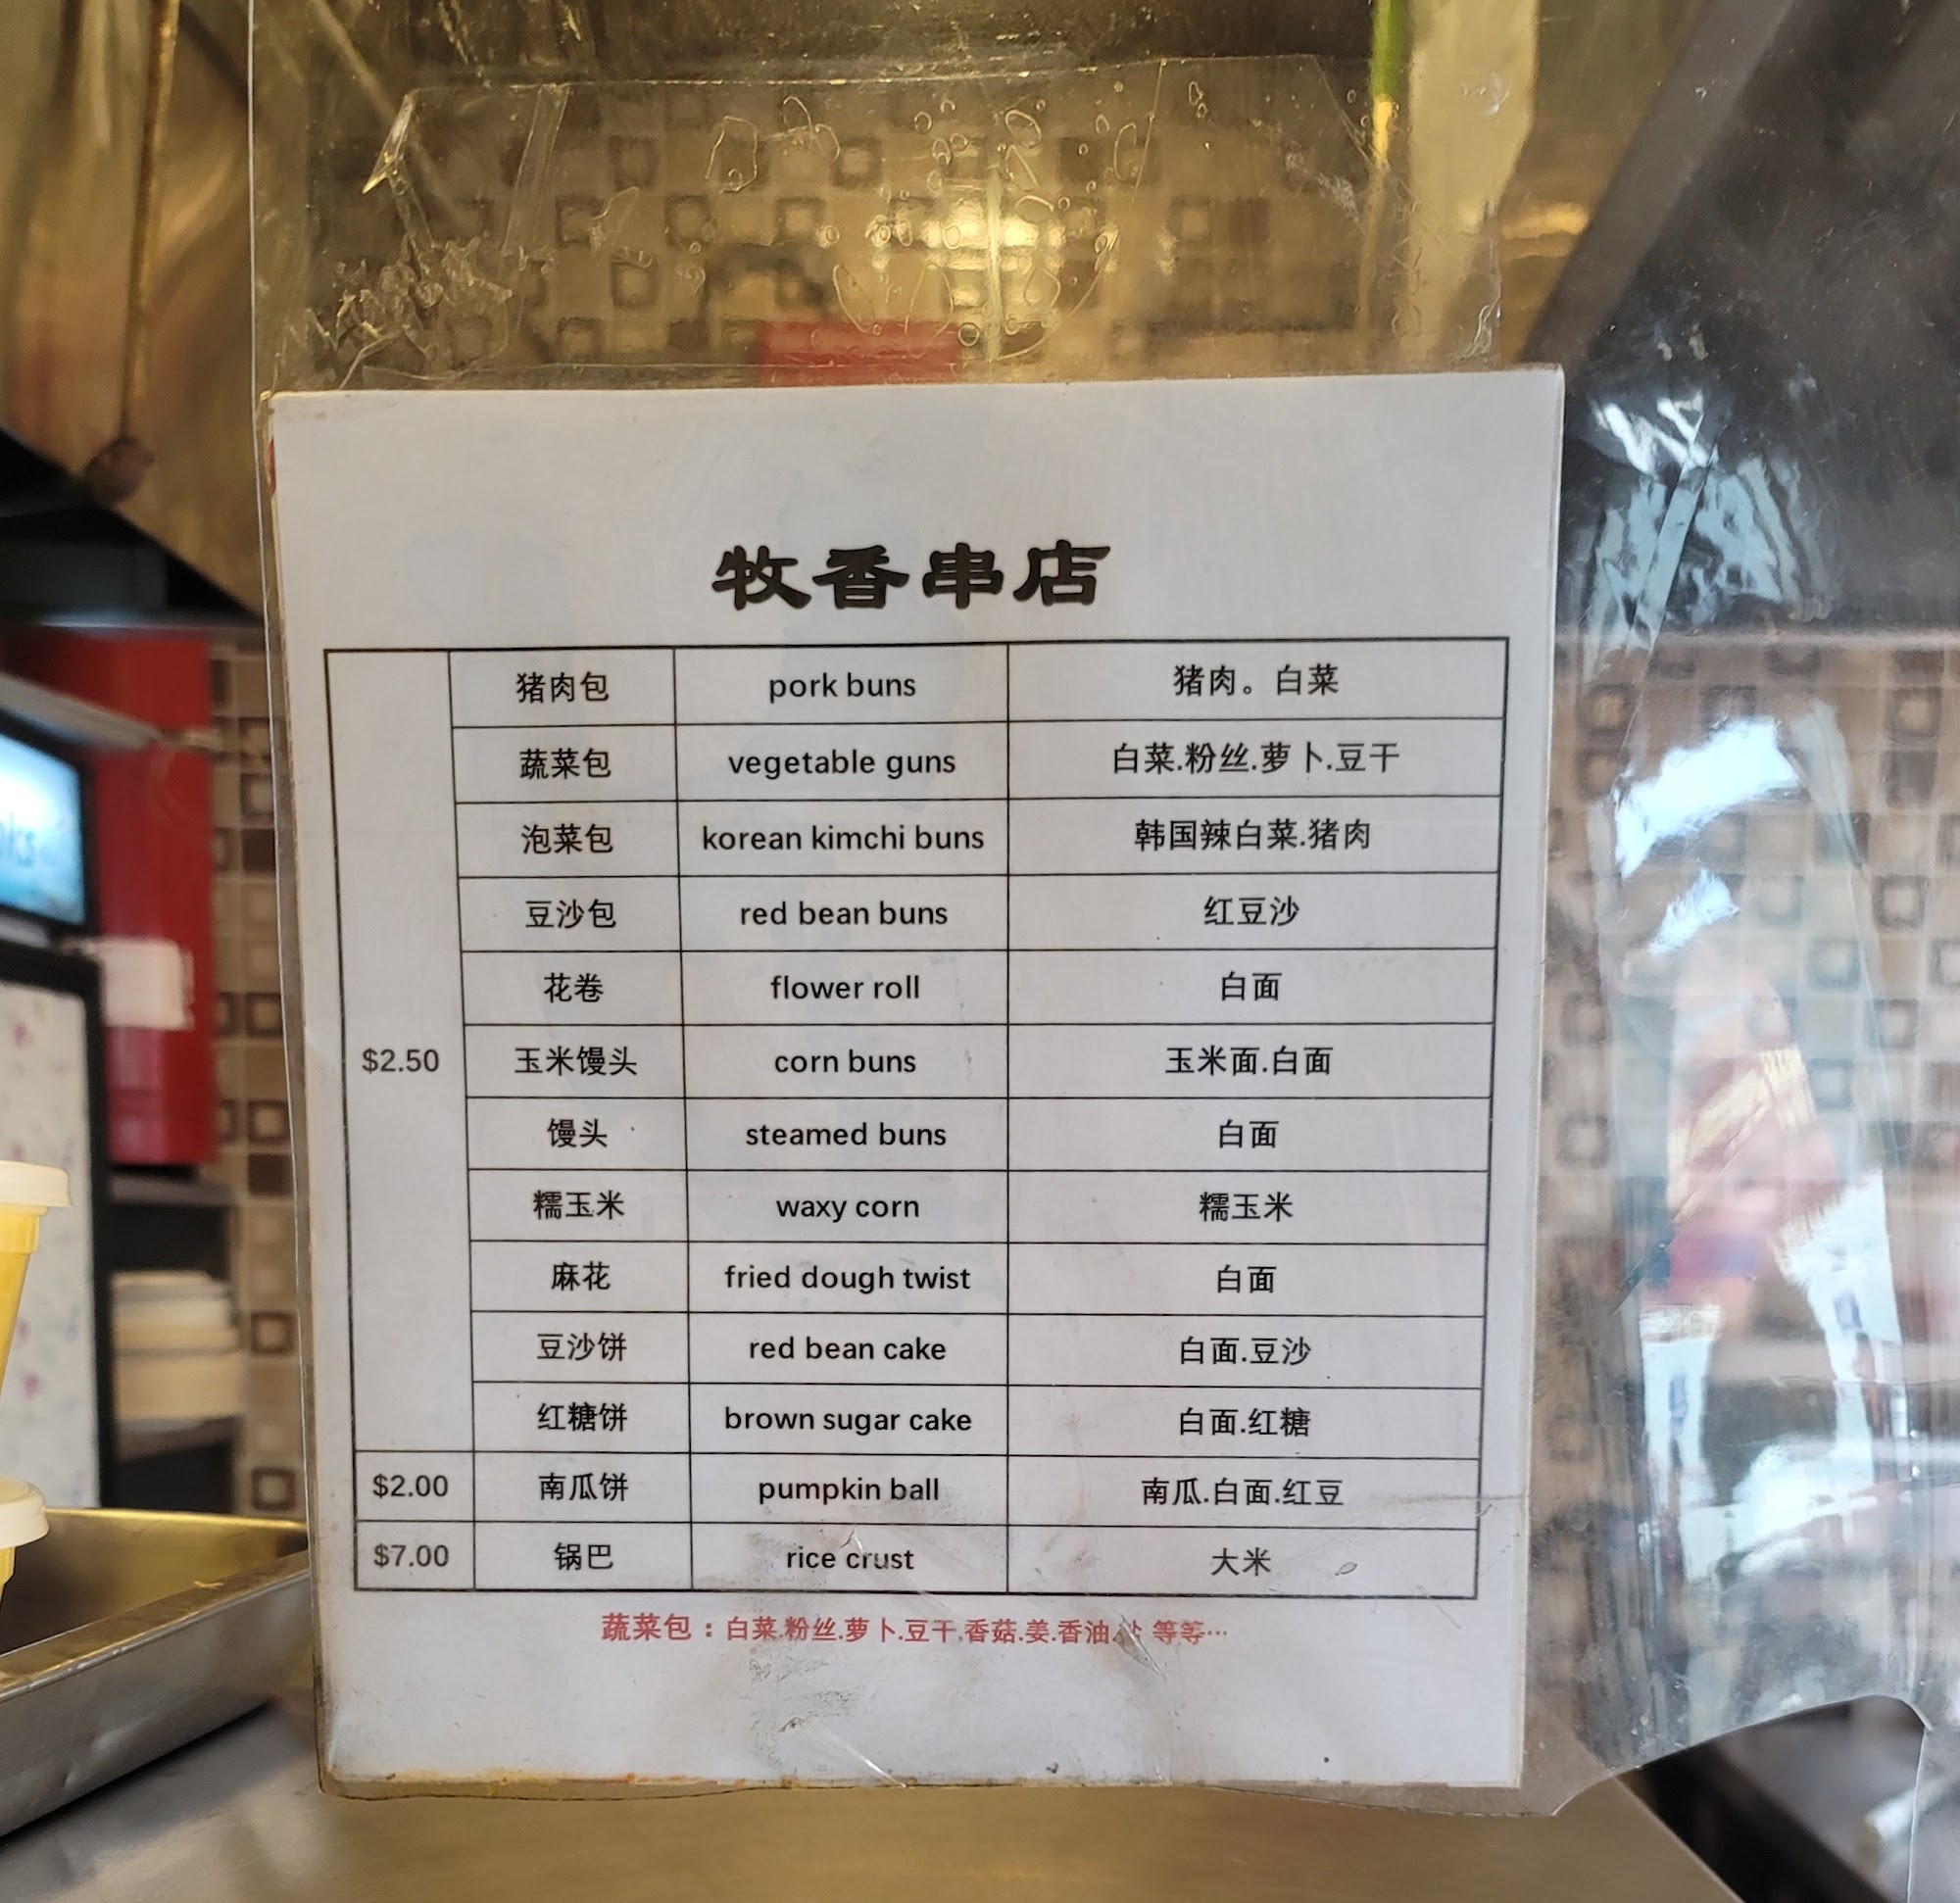 牧香串店
猪肉包 pork buns 猪肉。白菜
蔬菜包 vegetable guns 白菜.粉丝.萝卜.豆干
泡菜包 korean kimchi buns 韩国辣白菜.猪肉
豆沙包 red bean buns 红豆沙
花卷 flower roll 白面
$2.50 玉米馒头 corn buns 玉米面.白面
馒头 steamed buns 白面
糯玉米 waxy corn 糯玉米
麻花 fried dough twist 白面
豆沙饼 red bean cake 白面.豆沙
红糖饼 brown sugar cake 白面.红糖
$2.00 南瓜饼 pumpkin ball 南瓜.白面.红豆
$7.00 锅巴 rice crust 大米
蔬菜包：白菜.粉丝.萝卜.豆干.香菇.姜.香油. 等等…